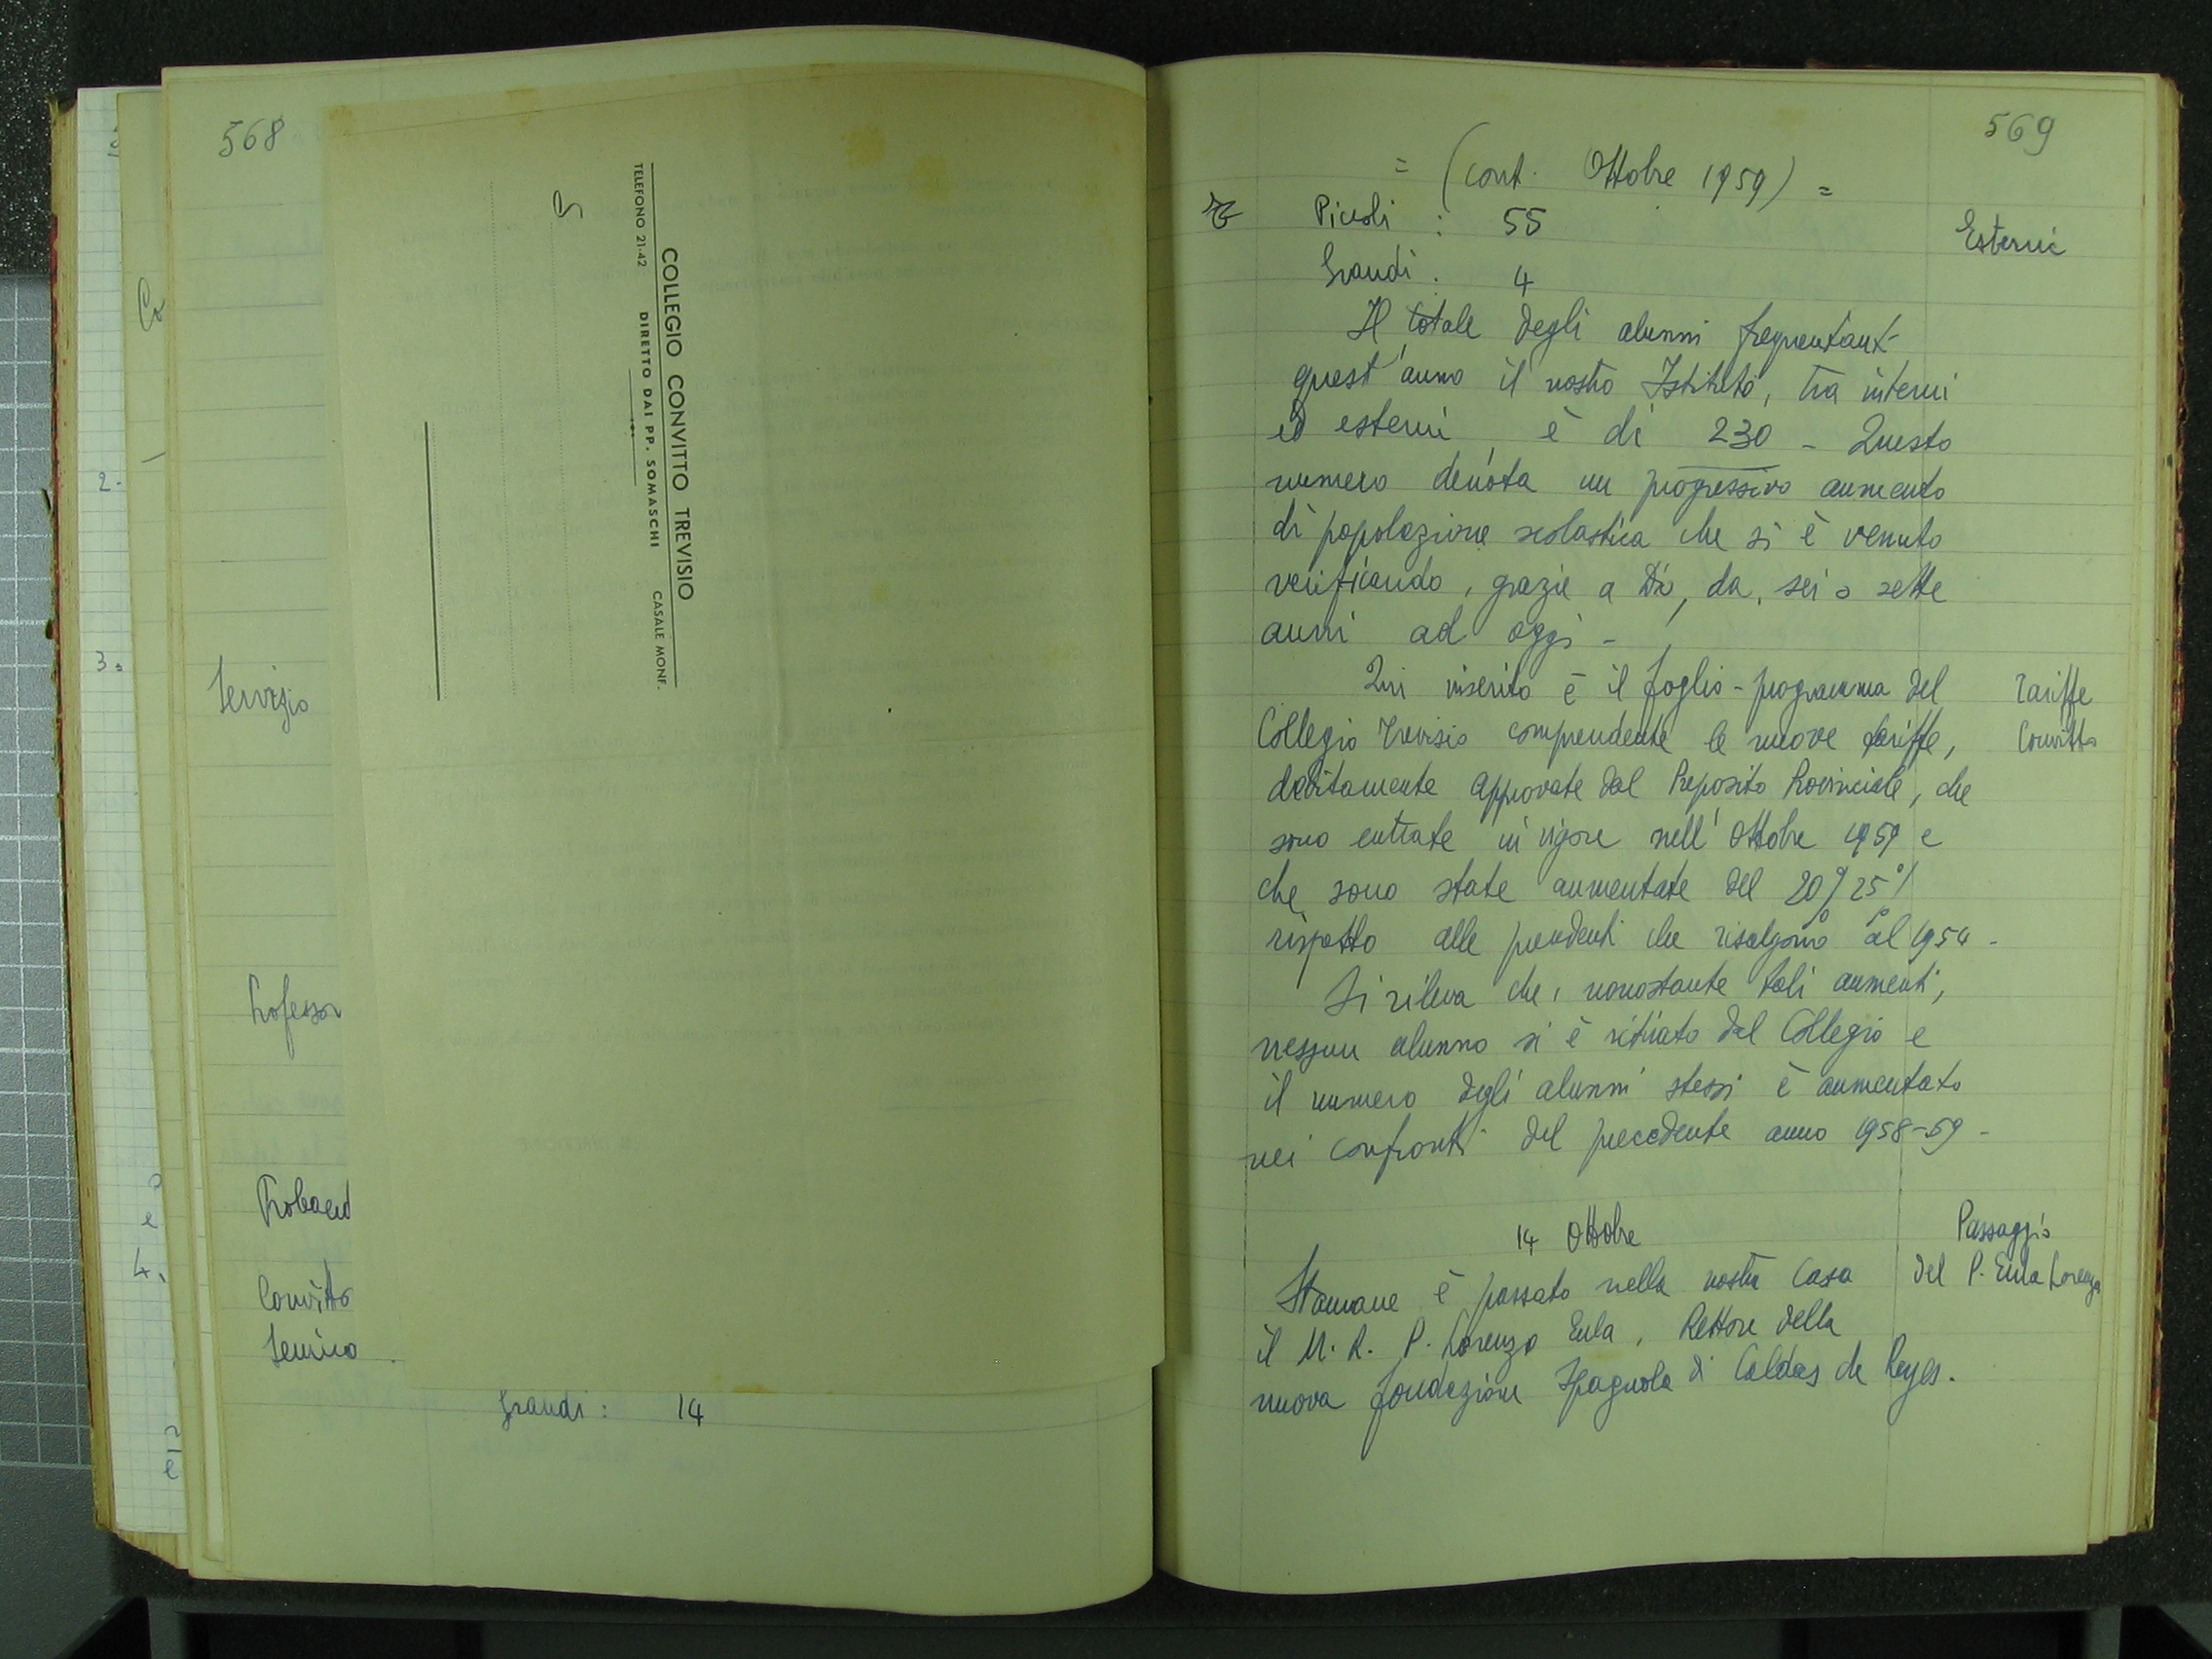 568
Servizio
Professor
Proband
Convitto
Semico
COLLEGIO CONVITTO TREVISIO
TELEFONO 21-42 DIRETTO DAI PP. SOMASCHI CASALE MONF.
Grandi: 14
2.
3.
4.
569
= (cont. Ottobre 1959) =
Piccoli : 55
Esterni
Grandi : 4
Il totale degli alunni frequentanti
quest'anno il nostro Istituto, tra interni
ed esterni, è di 230 - Questo
numero denota un progressivo aumento
di popolazione scolastica che si è venuto
verificando, grazie a Dio, da sei o sette
anni ad oggi -
Qui inserito è il foglio-programma del
Tariffe
Collegio Trevisio comprendente le nuove tariffe,
Convitto
debitamente approvate dal Preposito Provinciale, che
sono entrate in vigore nell'Ottobre 1959 e
che sono state aumentate del 20% 25%
rispetto alle precedenti che risalgono al 1954 -
Si rileva che, nonostante tali aumenti,
nessun alunno si è ritirato dal Collegio e
il numero degli alunni stessi è aumentato
nei confronti del precedente anno 1958-59 -
14 Ottobre
Passaggio
del P. Eula Lorenzo
Stamane è passato nella nostra Casa
il M. R. P. Lorenzo Eula, Rettore della
nuova fondazione Spagnola di Caldas de Reyes.